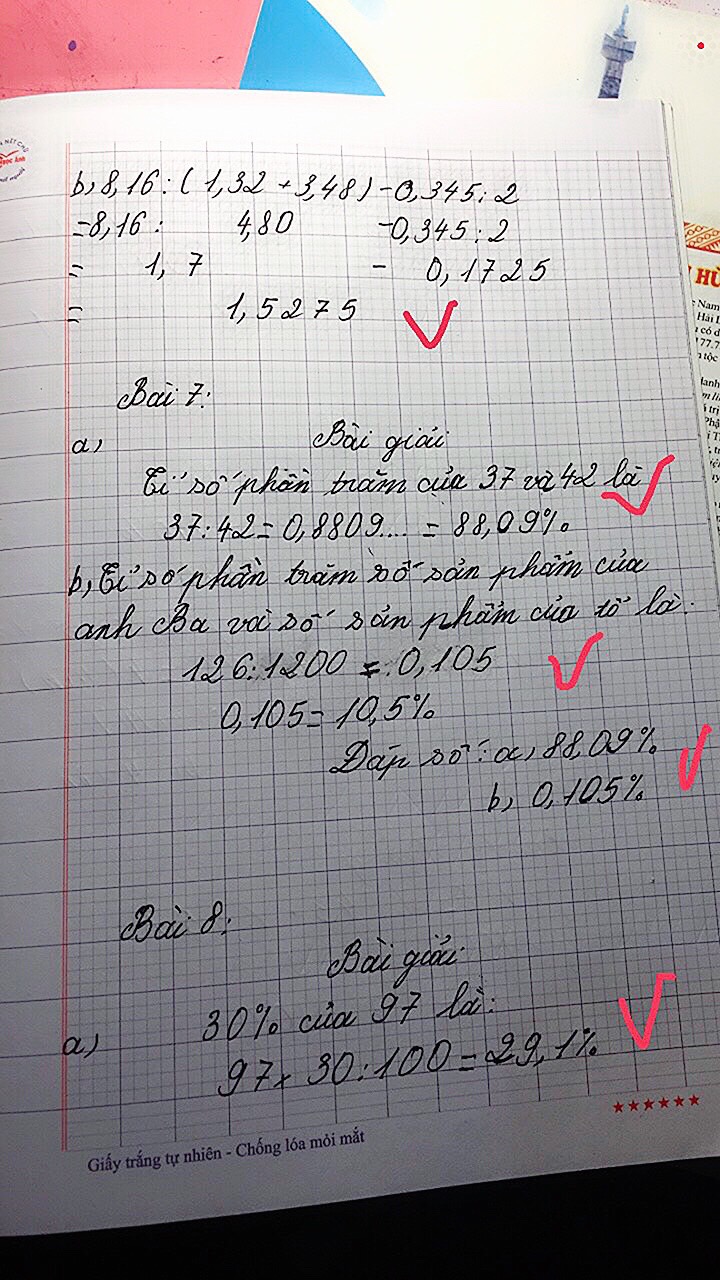 b, 8,16 : ( 1,32 + 3,48 ) - 0,345 : 2
= 8,16 : 4,80 - 0,345 : 2
= 1,7 - 0,1725
= 1,5275
Bài 7:
a, Bài giải
Tỉ số phần trăm của 37 và 42 là
37 : 42 = 0,8809... = 88,09%
b, Tỉ số phần trăm số sản phẩm của
anh Ba và số sản phẩm của tổ là.
126 : 1200 = 0,105
0,105 = 10,5%
Đáp số : a, 88,09%
b, 0,105%
Bài 8:
Bài giải
a) 30% của 97 là:
97 x 30 : 100 = 29,1%
Giấy trắng tự nhiên - Chống lóa mỏi mắt
HÙ
Nam
Hải
có d
177.7
tộc